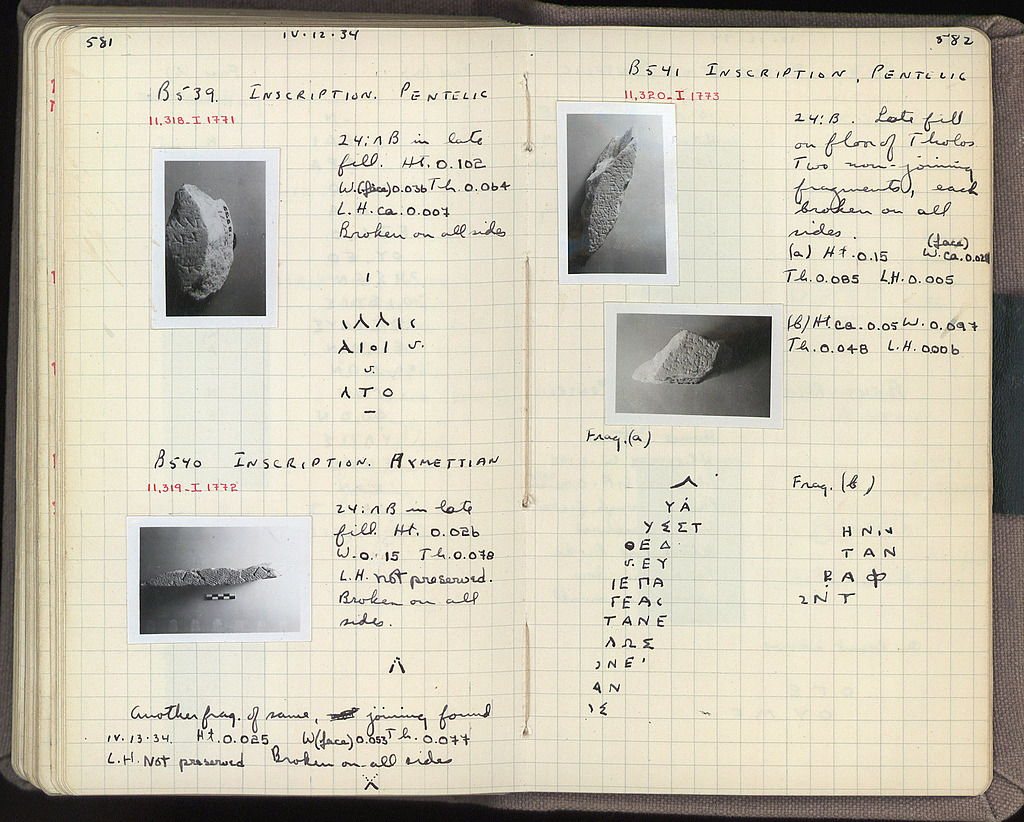 581
IV.12.34
B539. INSCRIPTION. PENTELIC
11,318-I 1771
24:ΛB in late
fill. Ht. 0.102
W.(face)0.036 Th. 0.064
L.H. ca. 0.007
Broken on all sides
ΑΙΟΙ υ.
υ.
Λ Τ Ο
B540 INSCRIPTION. HYMETTIAN
11,319-I 1772
24:ΛB in late
fill. Ht. 0.026
W. 0.15 Th. 0.078
L.H. not preserved.
Broken on all
sides.
Another frag. of same, joining found
IV.13.34. Ht. 0.025 W(face) 0.053 Th. 0.077
L.H. Not preserved Broken on all sides
582
B541 INSCRIPTION, PENTELIC
11,320-I 1773
24:B. Late fill
on floor of Tholos.
Two non-joining
fragments, each
broken on all
sides.
(a) Ht. 0.15 (face) W. ca.
Th. 0.085 L.H. 0.005
(b) Ht. ca. 0.05 W. 0.097
Th. 0.048 L.H. 0.006
Frag. (a)
Υ Α
Υ Σ Σ Τ
Θ Ε Δ
υ. Ε Υ
Ι Ε Π Α
Γ Ε Α Σ
Τ Α Ν Ε
Λ Ω Σ
Ν Ε
Α Ν
Ι Σ
Frag. (b)
Η Ν
Τ Α Ν
Ρ Α Φ
Ν Τ